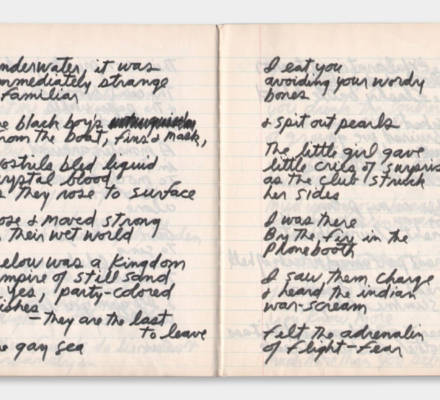 nderwater, it was
mmediately strange
familiar
e black boys
rom the boat, fins & mask,
ostrils bled liquid
rystal blood
s they rose to surface
ose & moved strong
their wet world
elow was a Kingdom
mpire of still sand
yes, party-colored
ishes
—They are the last
to leave
e gay sea
I eat you
avoiding your wordy
bones
& spit out pearls
The little girl gave
little cries of surprise
as the club struck
her sides
I was there
By the fire in the
Phonebooth
I saw them charge
& heard the indian
war-scream
felt the adrenalin
of flight-fear